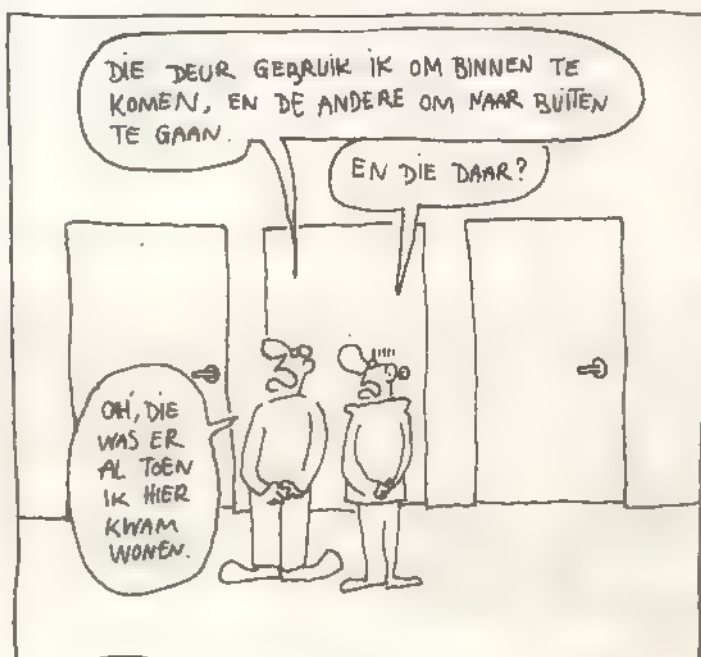 DIE DEUR GEBRUIK IK OM BINNEN TE
KOMEN, EN DE ANDERE OM NAAR BUITEN
TE GAAN.
EN DIE DAAR?
OH, DIE
WAS ER
AL TOEN
IK HIER
KWAM
WONEN.